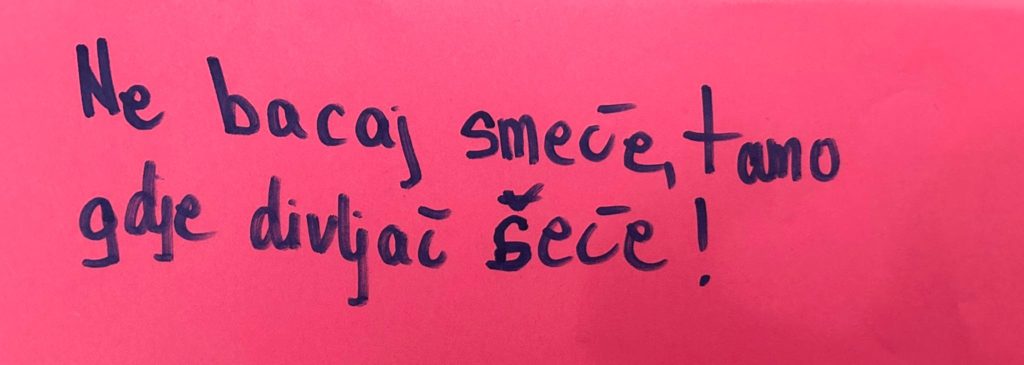 Ne bacaj smeće, tamo
gdje divljač šeće!